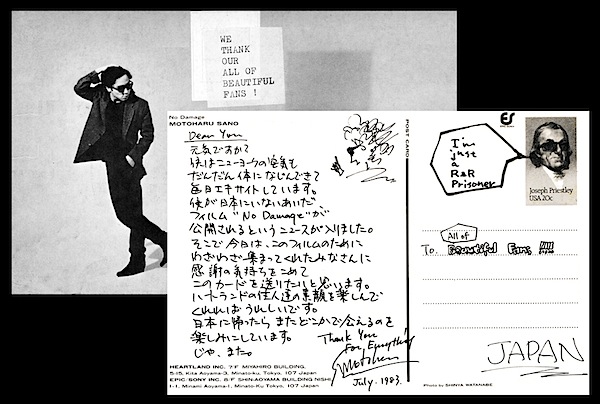 WE
THANK
OUR
ALL OF
BEAUTIFUL
FANS !
No Damage
MOTOHARU SANO
Dear You
元気ですか?
僕はニューヨークの空気も
だんだん体になじんできて
毎日エキサイトしています。
僕が日本にいないあいだ、
フィルム "No Damage" が、
公開されるというニュースが入りました。
そこで今日は、このフィルムのために
わざわざ集まってくれたみなさんに
感謝の気持ちをこめて
このカードを送りたいと思います。
ハートランドの住人達の素顔を楽しんで
くれればうれしいです。
日本に帰ったら またどこかで会えるのを
楽しみにしています。
じゃ、また。
Thank You
For, Everything
Motoharu
July. 1983.
HEARTLAND INC. 7/F MIYAHIRO BUILDING,
5-15, Kita Aoyama-3, Minato-ku, Tokyo, 107 Japan
EPIC SONY INC. 8/F SHIN-AOYAMA BUILDING NISHI
1-1, Minami Aoyama-1, Minato-Ku Tokyo, 107 Japan
POST CARD
ES
I'm
just
a
R&R
Prisoner
Joseph Priestley
USA 20c
All of
To. Beautiful Fans !!!!
JAPAN
Photo by SHINYA WATANABE